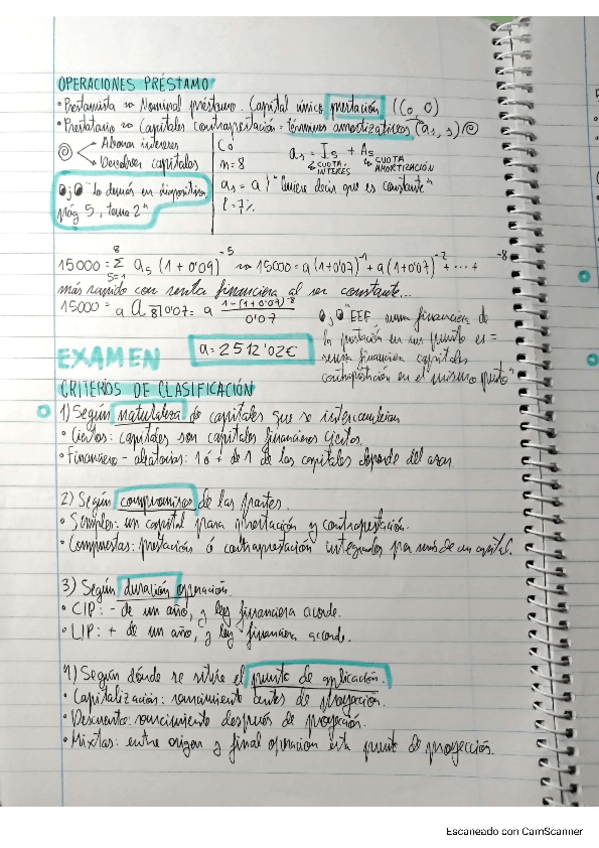 OPERACIONES PRÉSTAMO
• Prestamista → Nominal préstamo. Capital único prestación (C0, 0)
• Prestatario → Capitales contraprestación - términos amortizativos (as, s)
Abonar intereses
Devolver capitales
"lo demás en diapositiva
pág 5, tema 2"
C0
n=8
as = a } "Quiere decir que es constante"
i=7%
as = Is + As
CUOTA INTERES
CUOTA AMORTIZACIÓN
15000 = Σ as (1+0'09)^-5 → 15000 = a (1+0'07)^-1 + a (1+0'07)^-2 + ... + ^-8
8
S=1
más rapido con renta financiera al ser constante...
15000 = a a 8 0'07 = a 1-(1+0'07)^-8 / 0'07
a = 2512'02€
"EEF, suma financiera de
la prestación en un punto es =
suma financiera capitales
contraprestación en el mismo punto"
EXAMEN
CRITERIOS DE CLASIFICACIÓN
1) Según naturaleza de capitales que se intercambian
• Ciertos: capitales son capitales financieros ciertos.
• Financiero - aleatorias: 1 ó + de 1 de los capitales depende del azar
2) Según compromiso de las partes.
• Simples: un capital para prestación y contraprestación.
• Compuestas: prestación ó contraprestación integrados por más de un capital.
3) Según duración operación.
• C|P: - de un año, y ley financiera acorde.
• L|P: + de un año, y ley financiera acorde.
4) Según dónde se sitúe el punto de aplicación.
• Capitalización: vencimiento antes de proyección.
• Descuento: vencimiento después de proyección.
• Mixtas: entre origen y final operación esta punto de proyección.
Escaneado con CamScanner